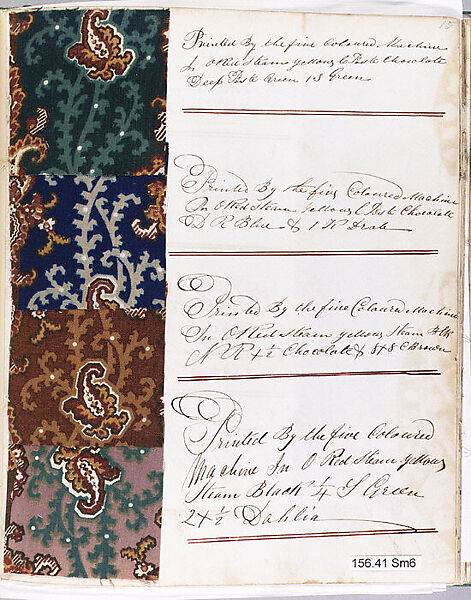 15
Printed By the five Coloured Machine
In O Red Steam yellow C Paste Chocolate
Deep Paste Green 1 S Green
Printed By the five Coloured Machine
In O Red Steam yellow C Paste Chocolate
D R Blue & 1 K Drab
Printed By the five Coloured Machine
In O Red Steam yellow Steam Blk
N R 4 ½ Chocolate & 8 & 8 C Brown
Printed By the five Coloured
Machine In O Red Steam yellow
Steam Black ¼ S Green
2 & ½ Dahlia
156.41 Sm6